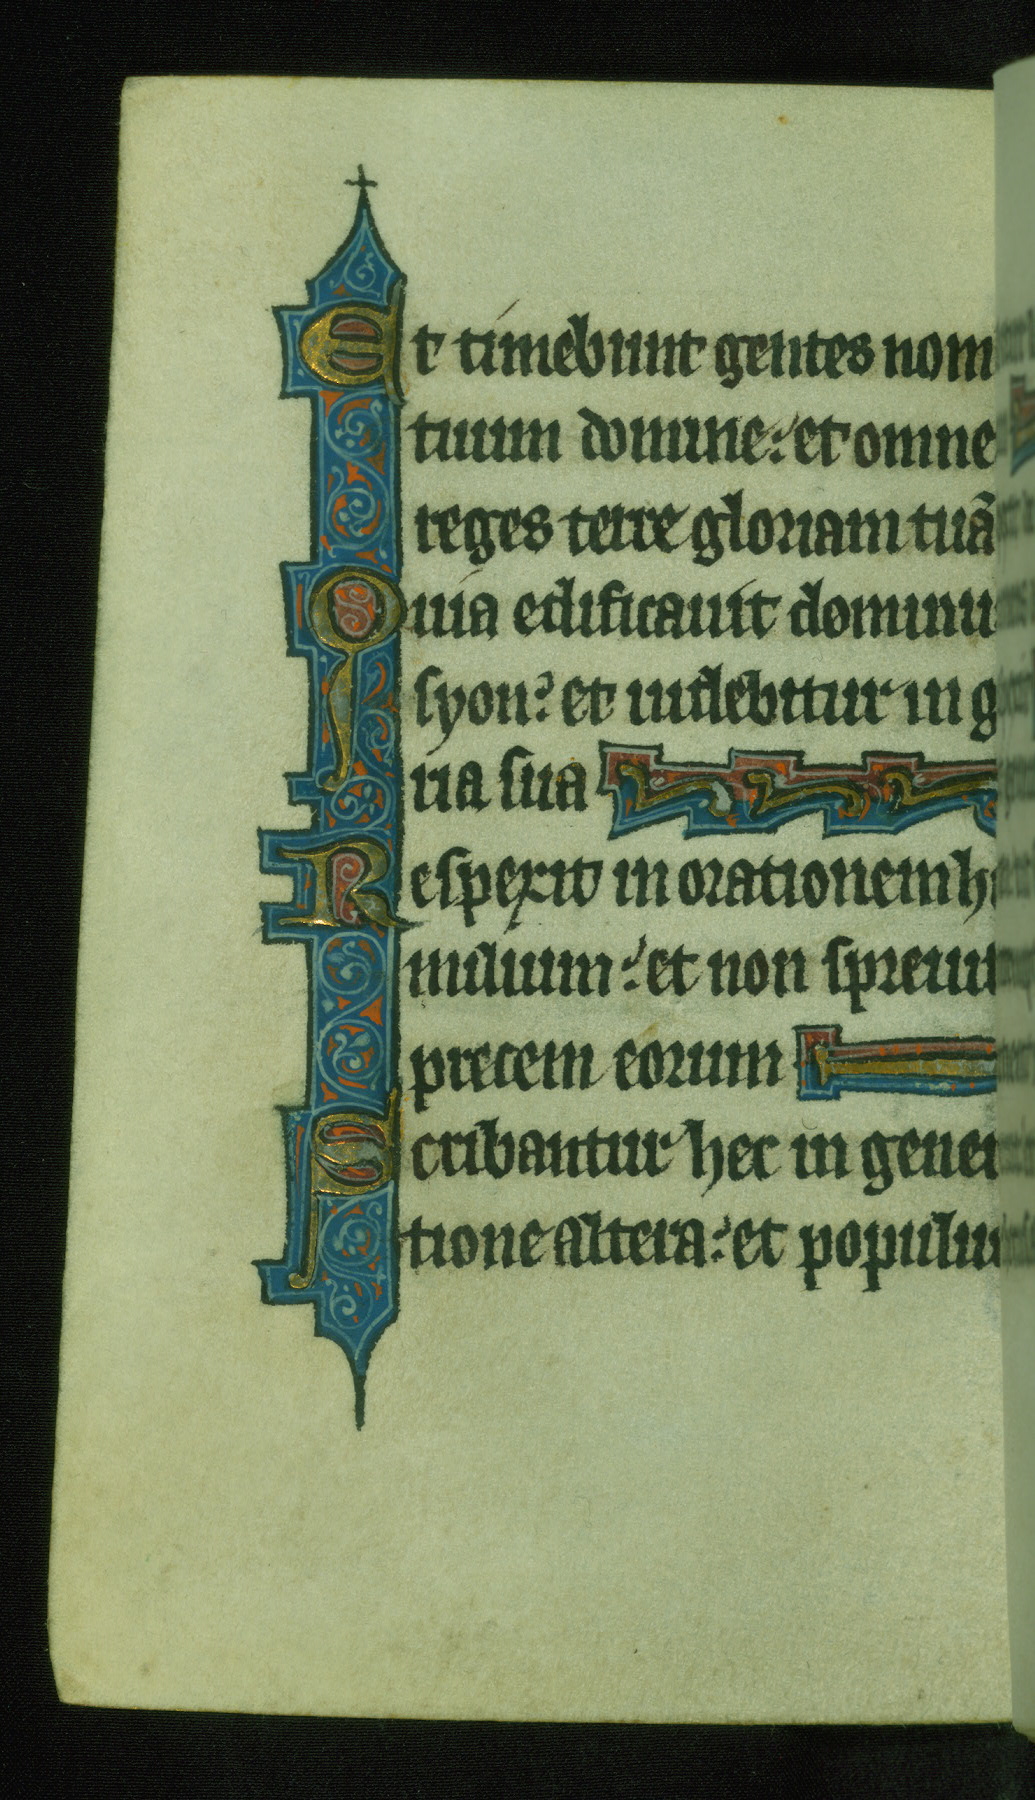 Et timebunt gentes nom
tuum domine: et omne
reges terre gloriam tuã
Quia edificauit dominu
syon: et uidebitur in g
ria sua
Respexit in orationem hu
milium: et non spreuit
precem eorum
Scribantur hec in gener
tione altera: et populu